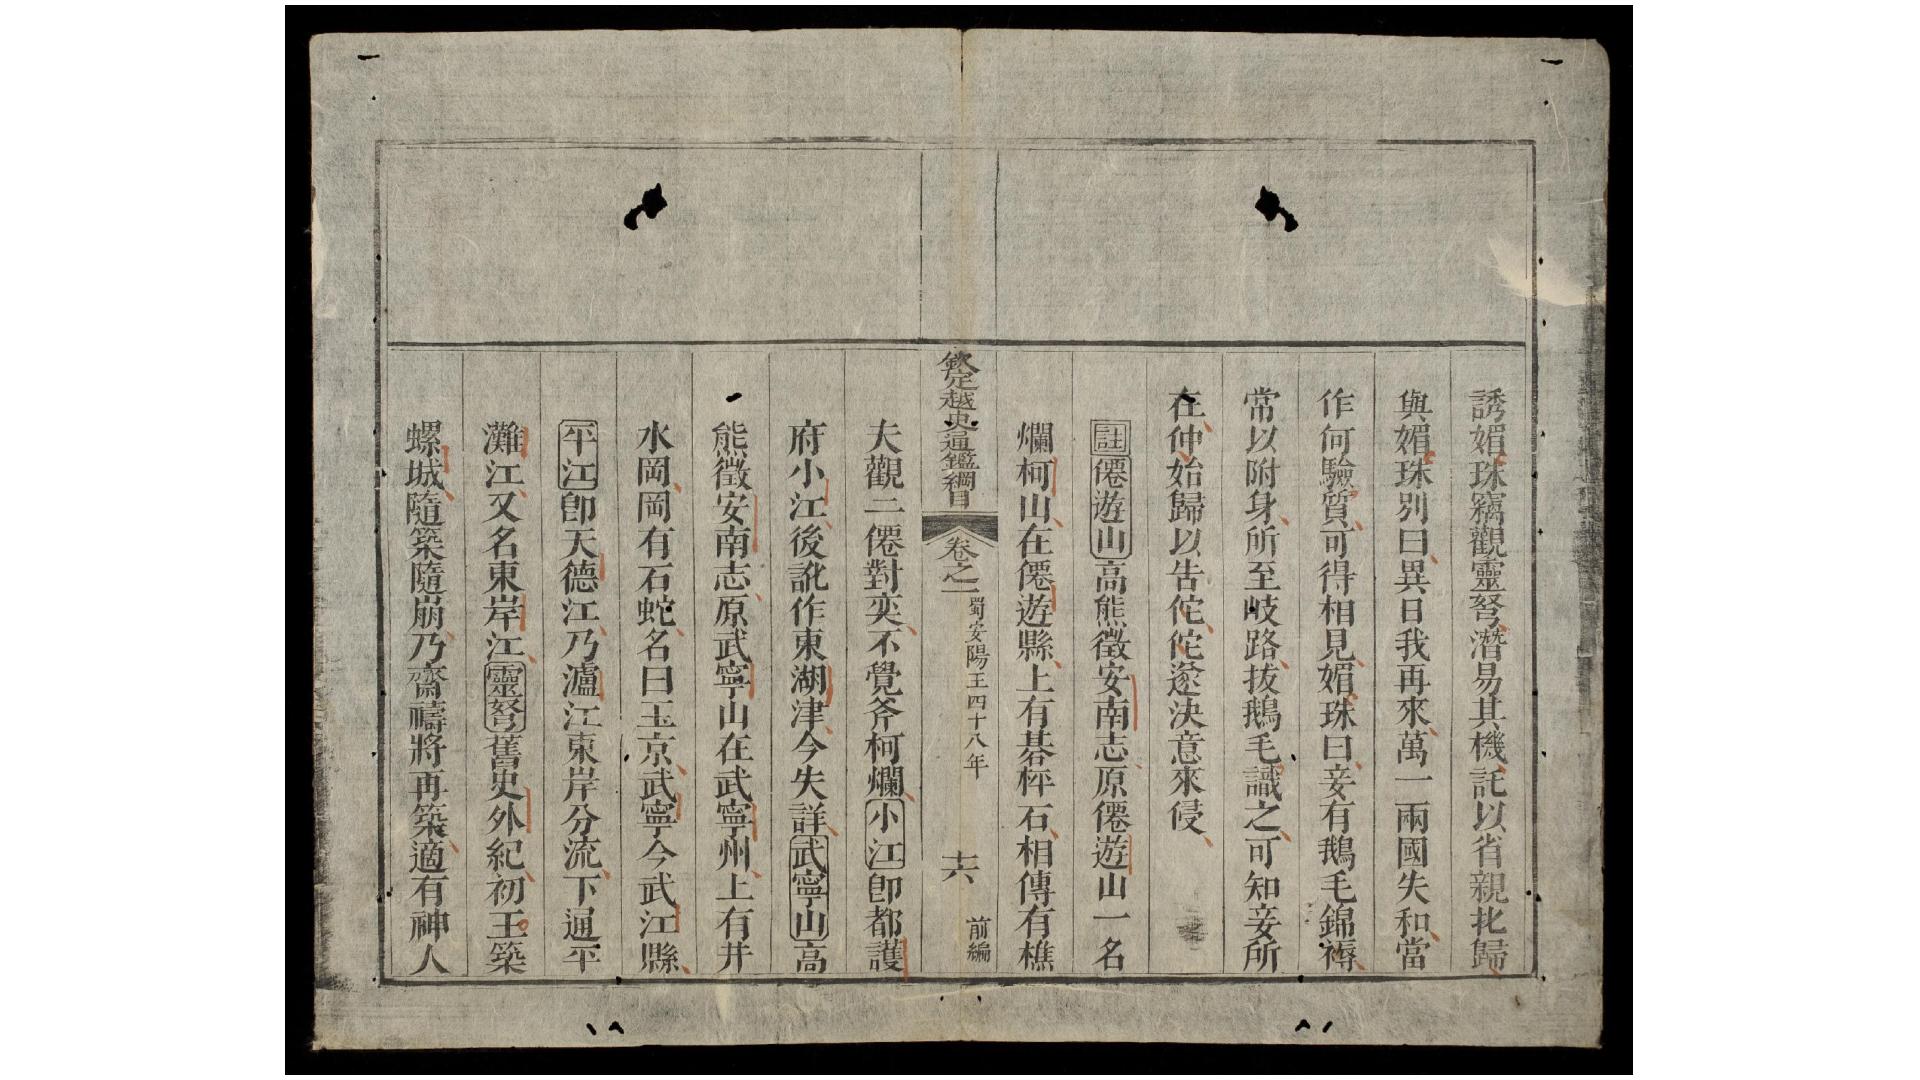 誘媚珠竊觀靈弩潛易其機託以省親北歸
與媚珠別曰異日我再來萬一兩國失和當
作何驗質可得相見媚珠曰妾有鵝毛錦褥
常以附身所至岐路拔鵝毛識之可知妾所
在仲始歸以吿佗佗遂決意來侵
註僊遊山高熊徵安南志原僊遊山一名
爛柯山在僊遊縣上有棊枰石相傳有樵
夫觀二僊對奕不覺斧柯爛小江卽都護
府小江後訛作東湖津今失詳武寧山高
熊徵安南志原武寧山在武寧州上有井
水岡岡有石蛇名曰玉京武寧今武江縣
平江卽天德江乃瀘江東岸分流下通平
灘江又名東岸江靈弩舊史外紀初王築
螺城隨築隨崩乃齋禱將再築適有神人
欽定越史通鑑綱目
卷之一
蜀安陽王四十八年
十六
前編